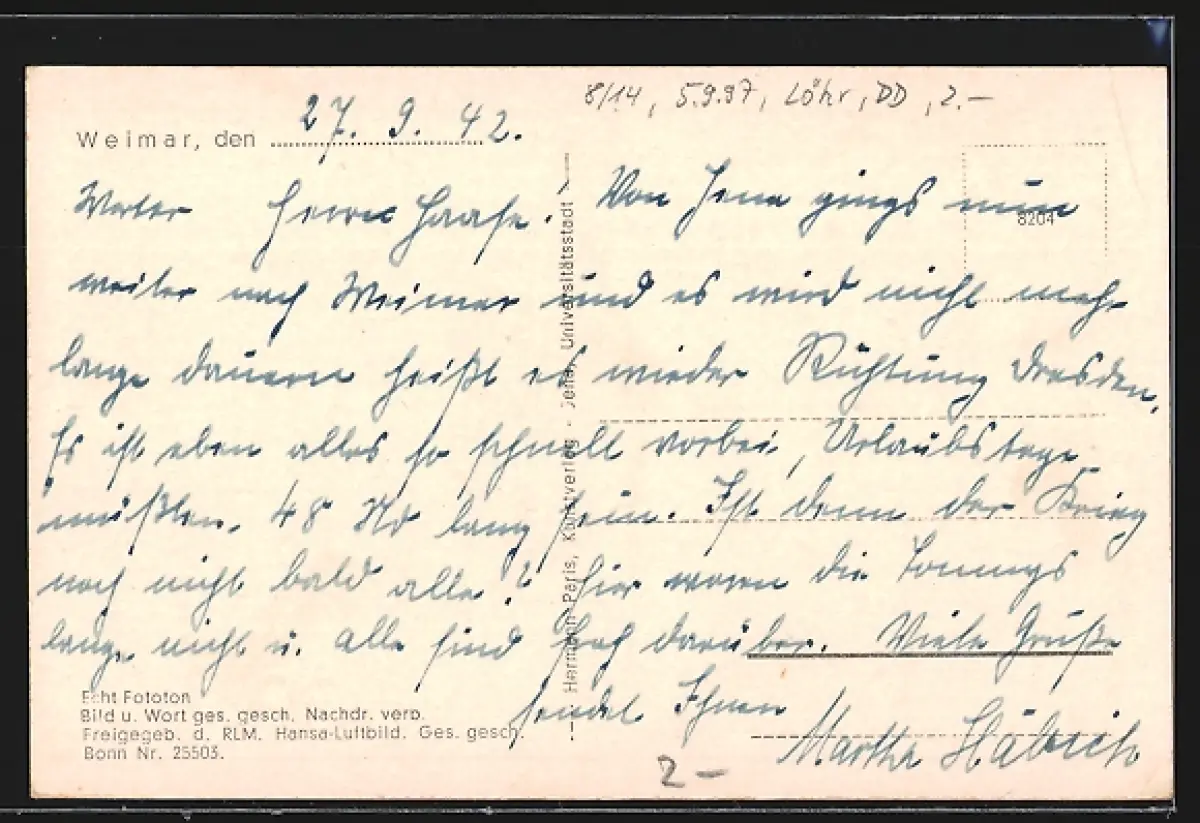 8/14, 5.9.97, Löhr, DD, 2.–
Weimar, den 27. 9. 42.
Werter Herrn Haase! Von Jena gings nun
weiter nach Weimar und es wird nicht mehr
lange dauern heißt es wieder Richtung Dresden.
Es ist eben alles so schnell vorbei, Urlaubstage
müßten 48 Std lang sein. Ist denn der Krieg
noch nicht bald alle? Hier waren die Tommys
lange nicht u. alle sind froh darüber. Viele Grüße
sendet Ihnen Martha
8204
Hermann Paris, Kunstverlag - Jena, Universitätsstadt
Echt Fototon
Bild u. Wort ges. gesch. Nachdr. verb.
Freigegeb. d. RLM. Hansa-Luftbild. Ges. gesch.
Bonn Nr. 25503.
2 –